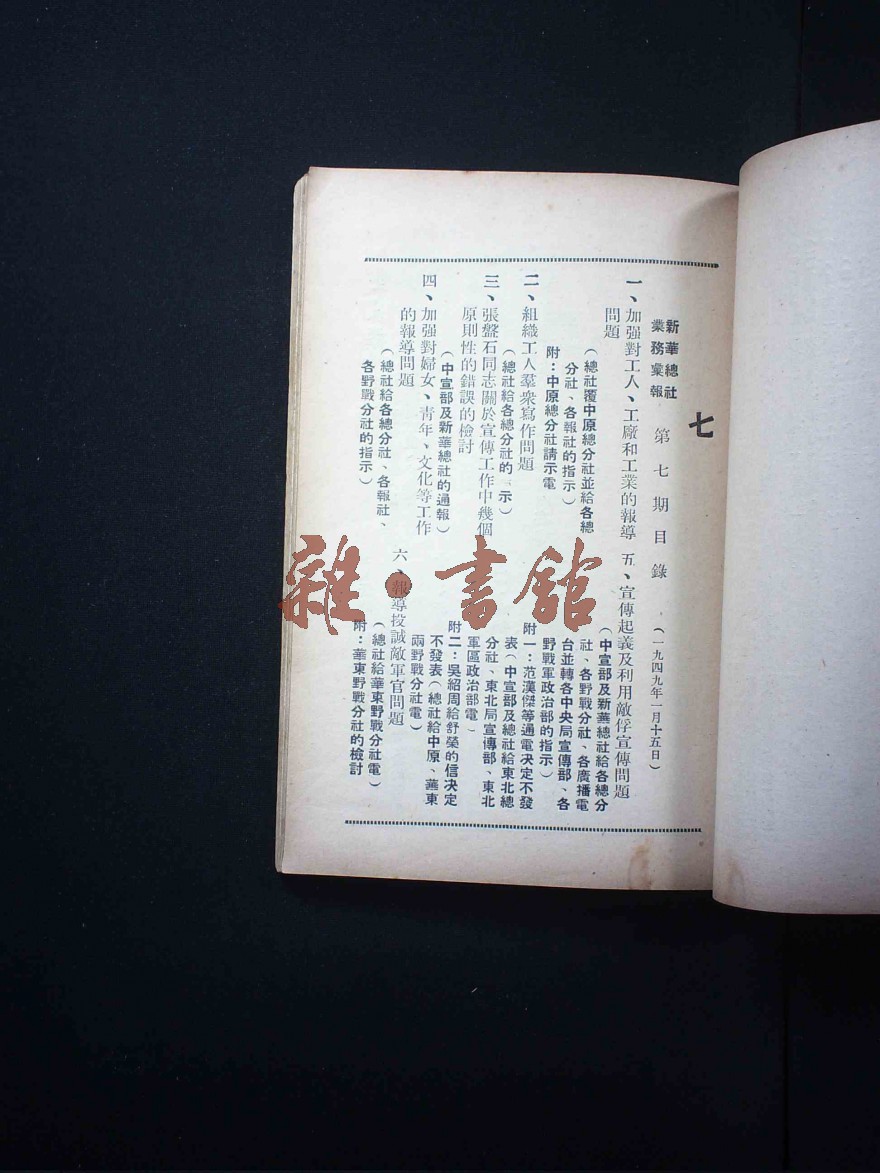 七
新華總社
業務彙報
第七期目錄
(一九四九年一月十五日)
一、加强對工人、工廠和工業的報導
問題
(總社覆中原總分社並給各總
分社、各報社的指示)
附：中原總分社請示電
二、組織工人羣衆寫作問題
(總社給各總分社的 示)
三、張盤石同志關於宣傳工作中幾個
原則性的錯誤的檢討
(中宣部及新華總社的通報)
四、加强對婦女、青年、文化等工作
的報導問題
(總社給各總分社、各報社、
各野戰分社的指示)
五、宣傳起義及利用敵俘宣傳問題
(中宣部及新華總社給各總分
社、各野戰分社、各廣播電
台並轉各中央局宣傳部、各
野戰軍政治部的指示)
附一：范漢傑等通電決定不發
表(中宣部及總社給東北總
分社、東北局宣傳部、東北
軍區政治部電)
附二：吳紹周給舒榮的信決定
不發表(總社給中原、華東
兩野戰分社電)
六、報導投誠敵軍官問題
(總社給華東野戰分社電)
附：華東野戰分社的檢討
雜·書館